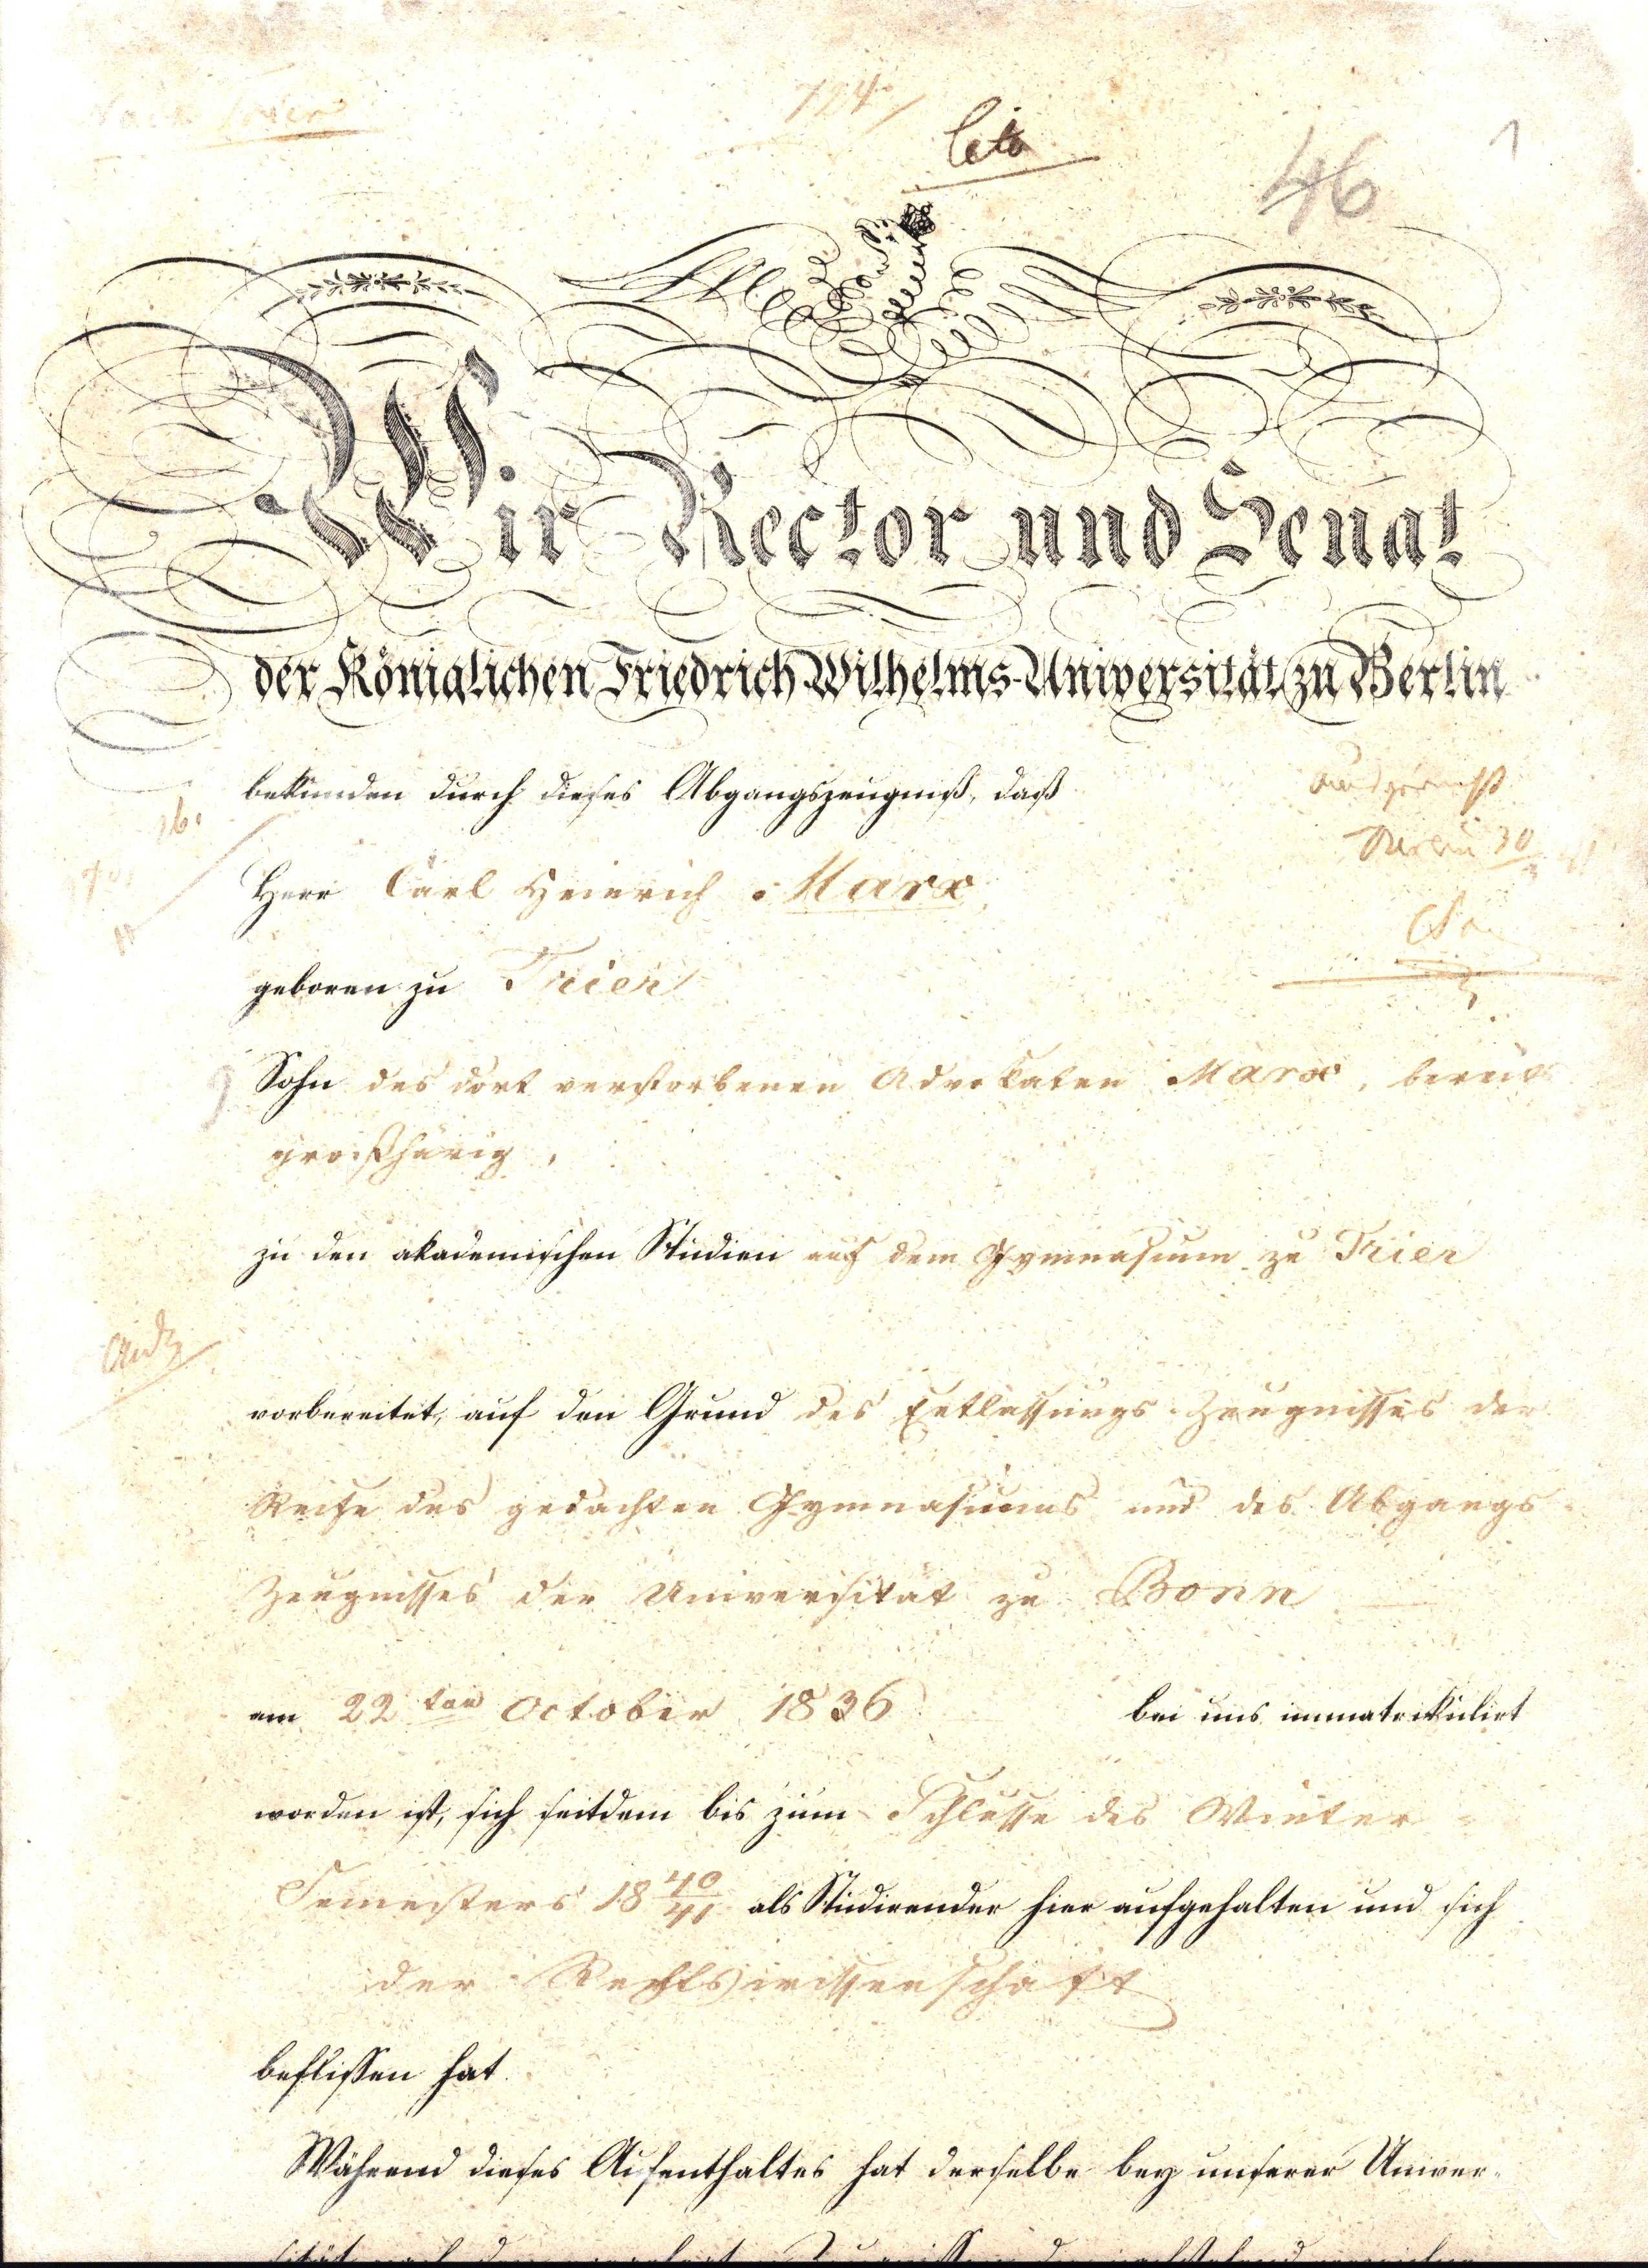 124
Cito
46
1
Wir Rector und Senat
der Königlichen Friedrich Wilhelms-Universität zu Berlin
bekunden durch dieses Abgangszeugniß, daß
16.
Herr Carl Heinrich Marx,
geboren zu Trier
Sohn des dort verstorbenen Advokaten Marx, bereits
großjärig,
zu den akademischen Studien auf dem Gymnasium zu Trier
vorbereitet, auf den Grund des Entlassungs-Zeugnisses der
Reife des gedachten Gymnasiums und des Abgangs-
Zeugnisses der Universität zu Bonn
am 22ten October 1836 bei uns immatrikulirt
worden ist, sich seitdem bis zum Schlusse des Winter-
Semesters 18 40/41 als Studirender hier aufgehalten und sich
der Rechtswissenschaft
beflissen hat.
Während dieses Aufenthaltes hat derselbe bey unserer Univer-